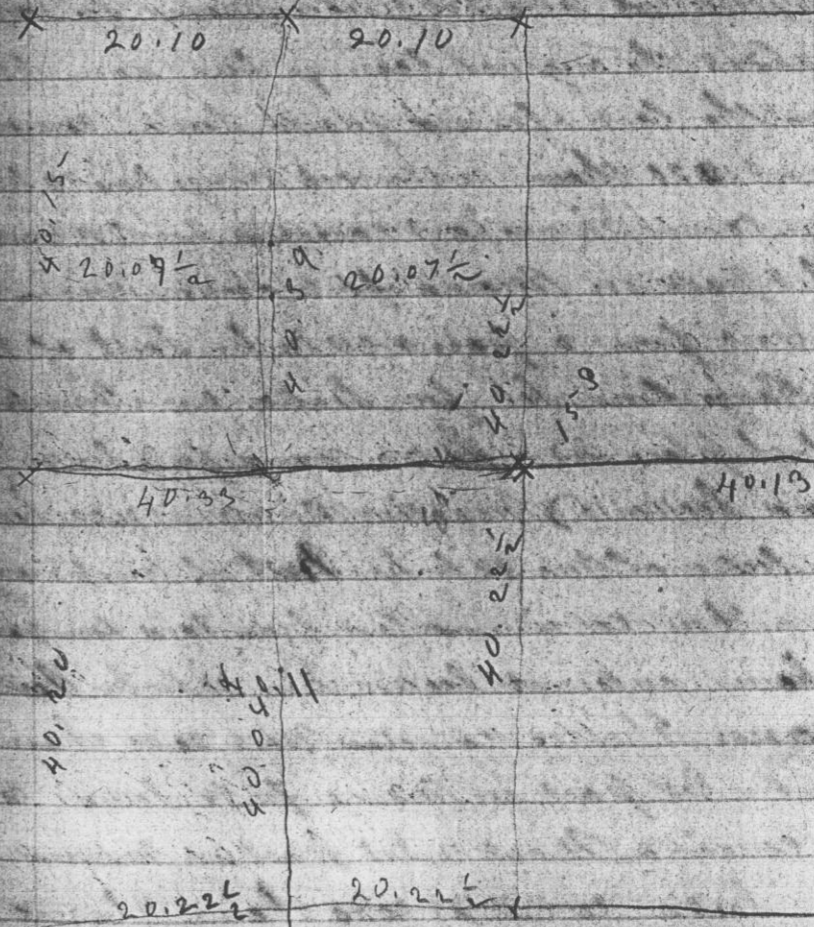 20.10
20.10
40.15
20.07½
40.39
20.07½
40.22½
159
40.33
40.13
40.22½
40.20
40.11
40.04
20.22½
20.22½